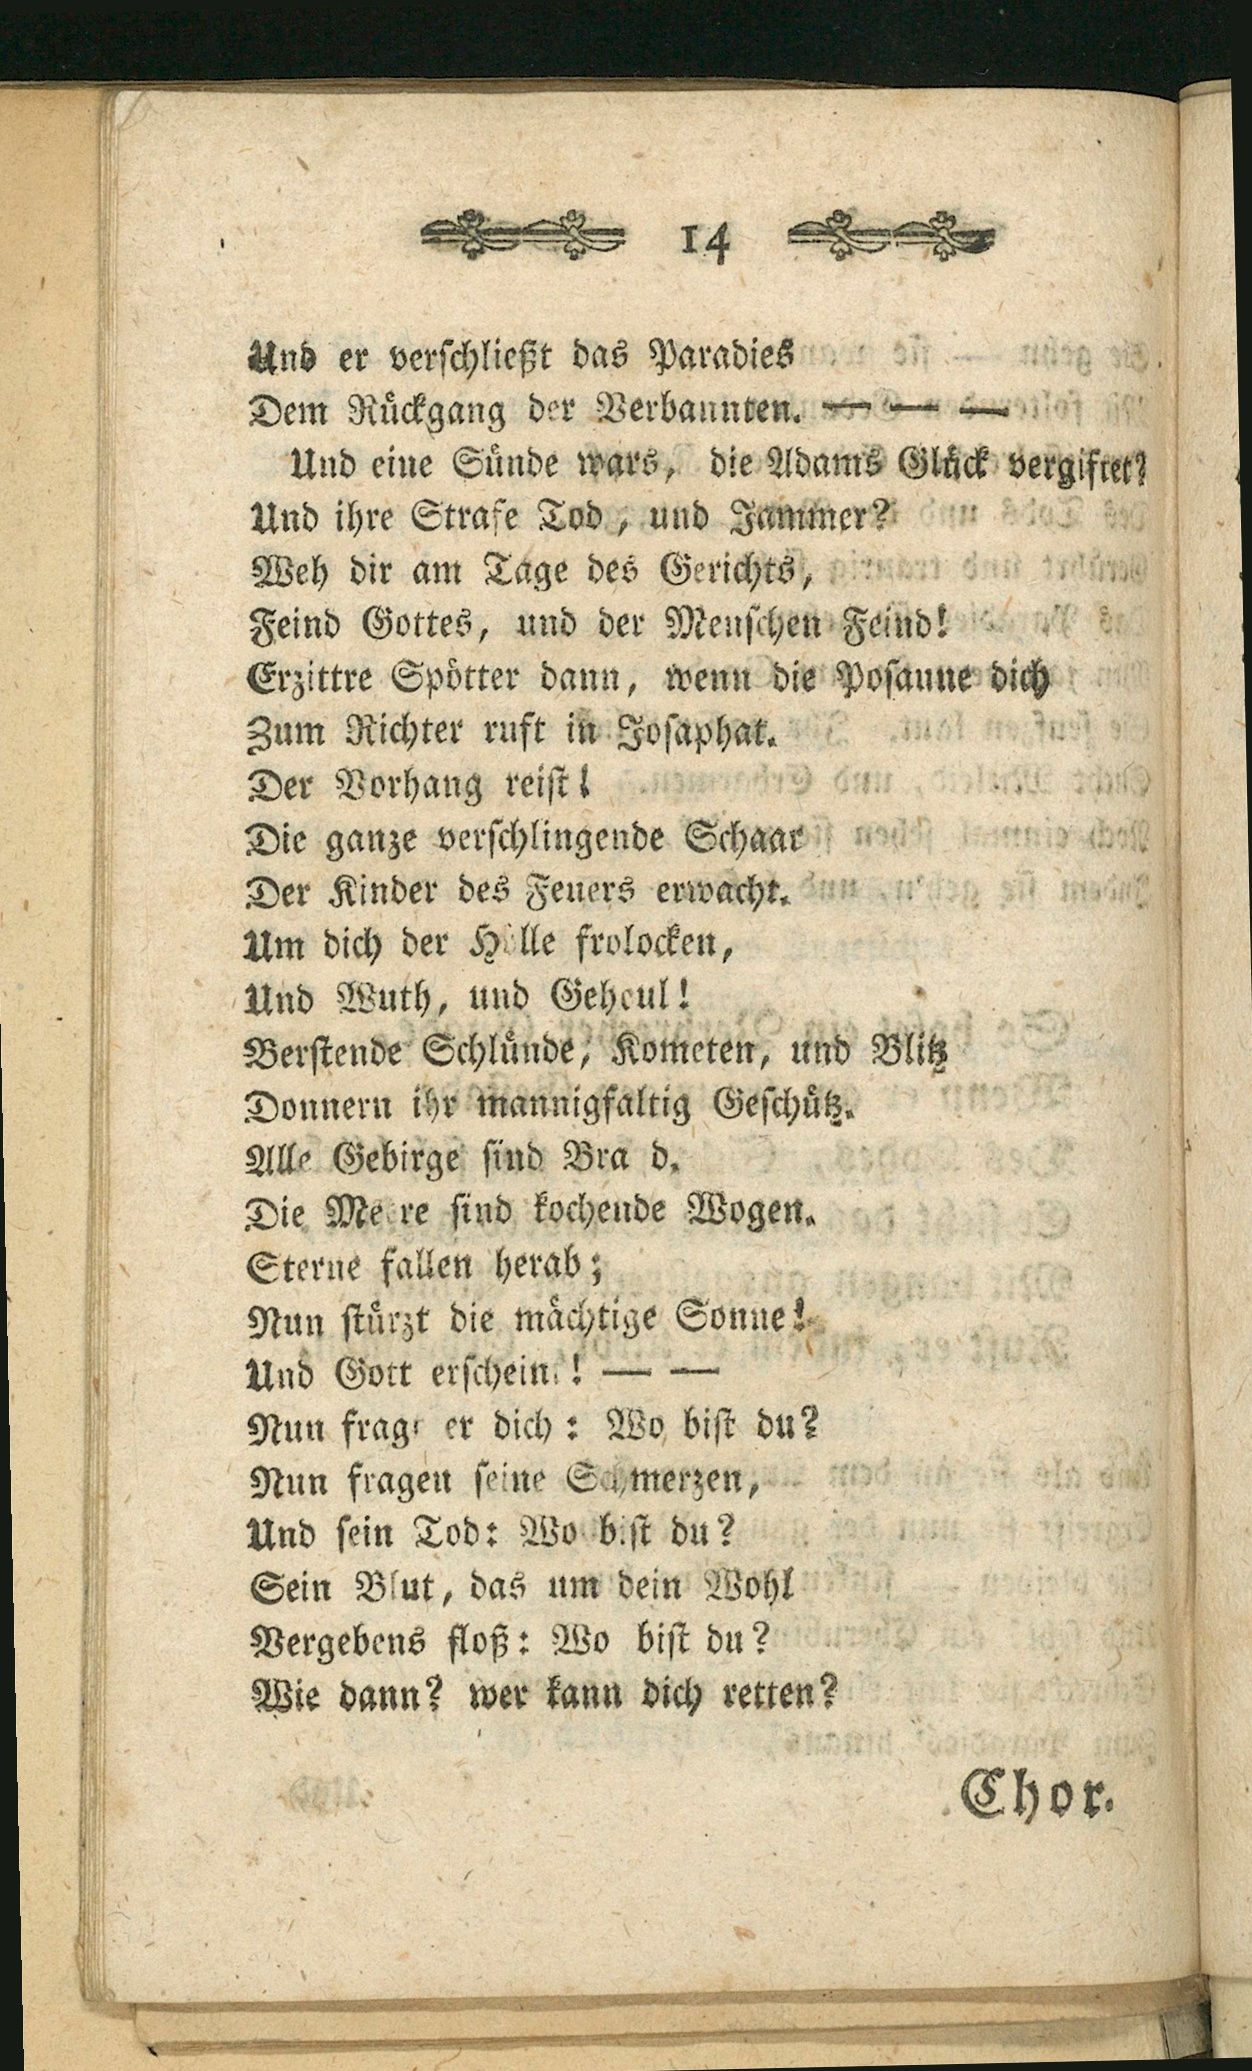 14
Und er verschließt das Paradies
Dem Rückgang der Verbannten. — — —
Und eine Sünde wars, die Adams Glück vergiftet?
Und ihre Strafe Tod, und Jammer?
Weh dir am Tage des Gerichts,
Feind Gottes, und der Menschen Feind!
Erzittre Spötter dann, wenn die Posaune dich
Zum Richter ruft in Josaphat.
Der Vorhang reist!
Die ganze verschlingende Schaar
Der Kinder des Feuers erwacht.
Um dich der Hölle frolocken,
Und Wuth, und Geheul!
Berstende Schlünde, Kometen, und Blitz
Donnern ihr mannigfaltig Geschütz.
Alle Gebirge sind Bra d.
Die Meere sind kochende Wogen.
Sterne fallen herab;
Nun stürzt die mächtige Sonne!
Und Gott erscheint! — —
Nun fragt er dich: Wo bist du?
Nun fragen seine Schmerzen,
Und sein Tod: Wo bist du?
Sein Blut, das um dein Wohl
Vergebens floß: Wo bist du?
Wie dann? wer kann dich retten?
Chor.